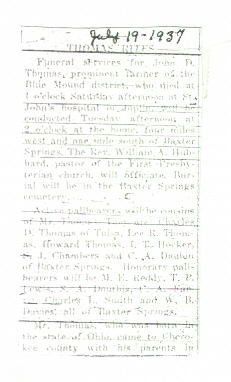 July 19-1937
THOMAS RITES
Funeral services for John D.
Thomas, prominent farmer of the
Blue Mound district, who died at
1 o'clock Saturday afternoon at St.
John's hospital of Joplin, will be
conducted Tuesday afternoon at
2 o'clock at the home, four miles
west and one mile south of Baxter
Springs. The Rev. William A. Hub-
bard, pastor of the First Presby-
terian church, will officiate. Bur-
ial will be in the Baxter Springs
cemetery.
Active pallbearers will be cousins
of Mr. Thomas. They are Charles
D. Thomas of Tulsa, Lee R. Thom-
as, Howard Thomas, I. T. Hocker,
S. J. Chambers and C. A. Douton
of Baxter Springs. Honorary pall-
bearers will be M. E. Reddy, T. P.
Lewis, S. A. Douthit, C. A.
Charles L. Smith and W. B.
Davies, all of Baxter Springs.
Mr. Thomas, who was born in
the state of Ohio, came to Chero-
kee county with his parents in